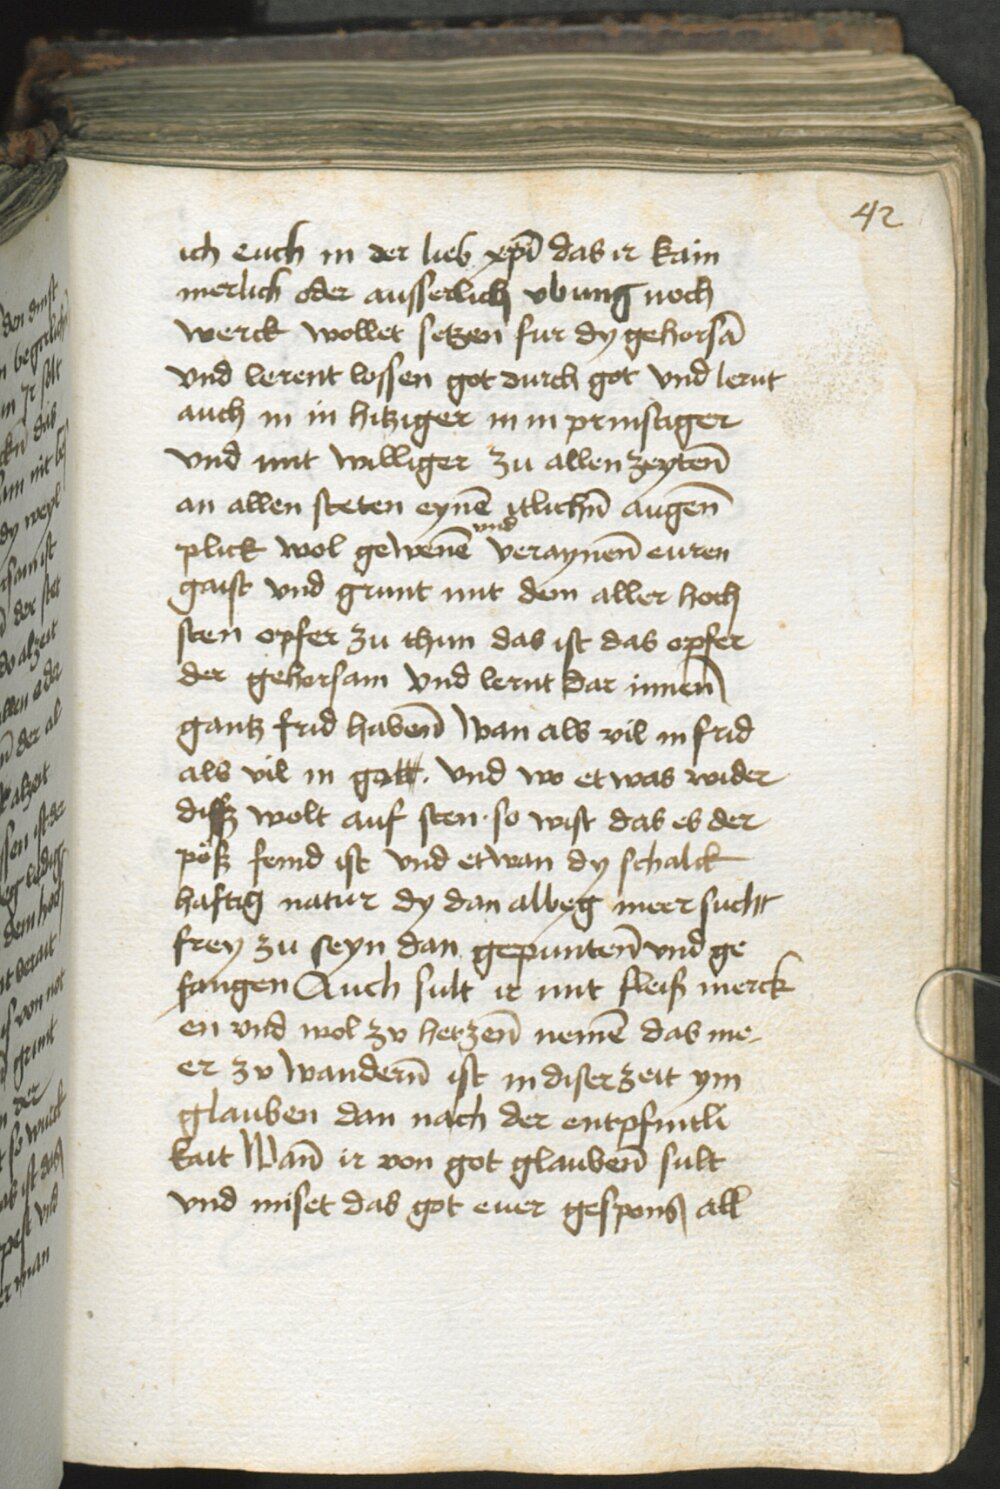 42
ich euch in der lieb xpī das ir kain
inerlich oder ausserlich vbung noch
werck wollet setzen fur dy gehorsā
vnd lerent lossen got durch got vnd lernt
auch in in hitziger in in prinstiger
vnd mit williger zu allen zeytē
an allen steten eynē itlichn̄ augen̄
plick wol gewenē vnd veraynen̄ euren
gaist vnd grunt mit dem aller hoch
sten opfer zu thun das ist das opfer
der gehorsam vnd lernt dar innen̄
gantz frid haben̄ Wan als vil in frid
als vil in gott. vnd wo etwas wider
diß wolt auf sten. so wist das es der
pöß feind ist vnd etwan dy schalck
haftig natur dy dan alweg meer sucht
frey zu seyn dan gepunten̄ vnd ge
fangen Auch sult ir mit fleiß merck
en vnd wol zv hertzen̄ nemē das me-
er zv wandern̄ ist in diser zeit ym
glauben dan nach der entpfintli
kait Wan̄ ir von got glauben̄ sult
vnd miset das got euer gespons all